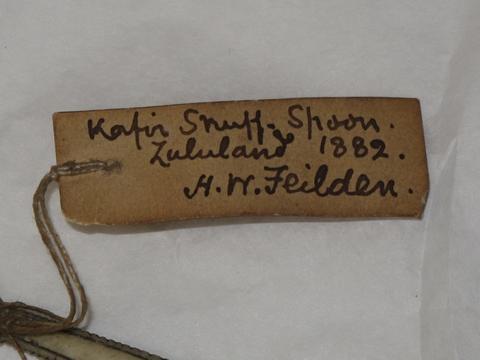 Kafir Snuff-Spoon.
Zululand 1882.
H. W. Feilden.